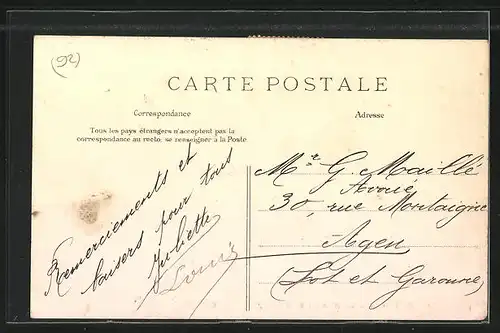 (92)
CARTE POSTALE
Correspondance
Adresse
Tous les pays étrangers n'acceptent pas la
correspondance au recto; se renseigner à la Poste
Remerciements et
baisers pour tous
Juliette
Louis
Mr G. Maillé
Avoué
30, rue Montaigne
Agen
(Lot et Garonne)